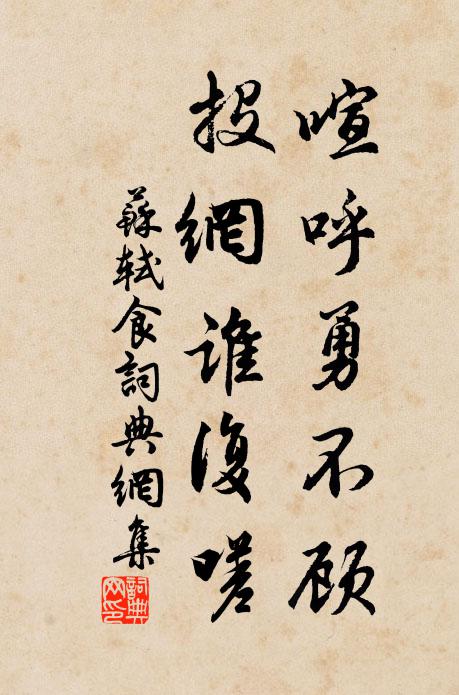 喧呼勇不顾
投網誰復嗟
蘇軾食詞典網集
詞典网印